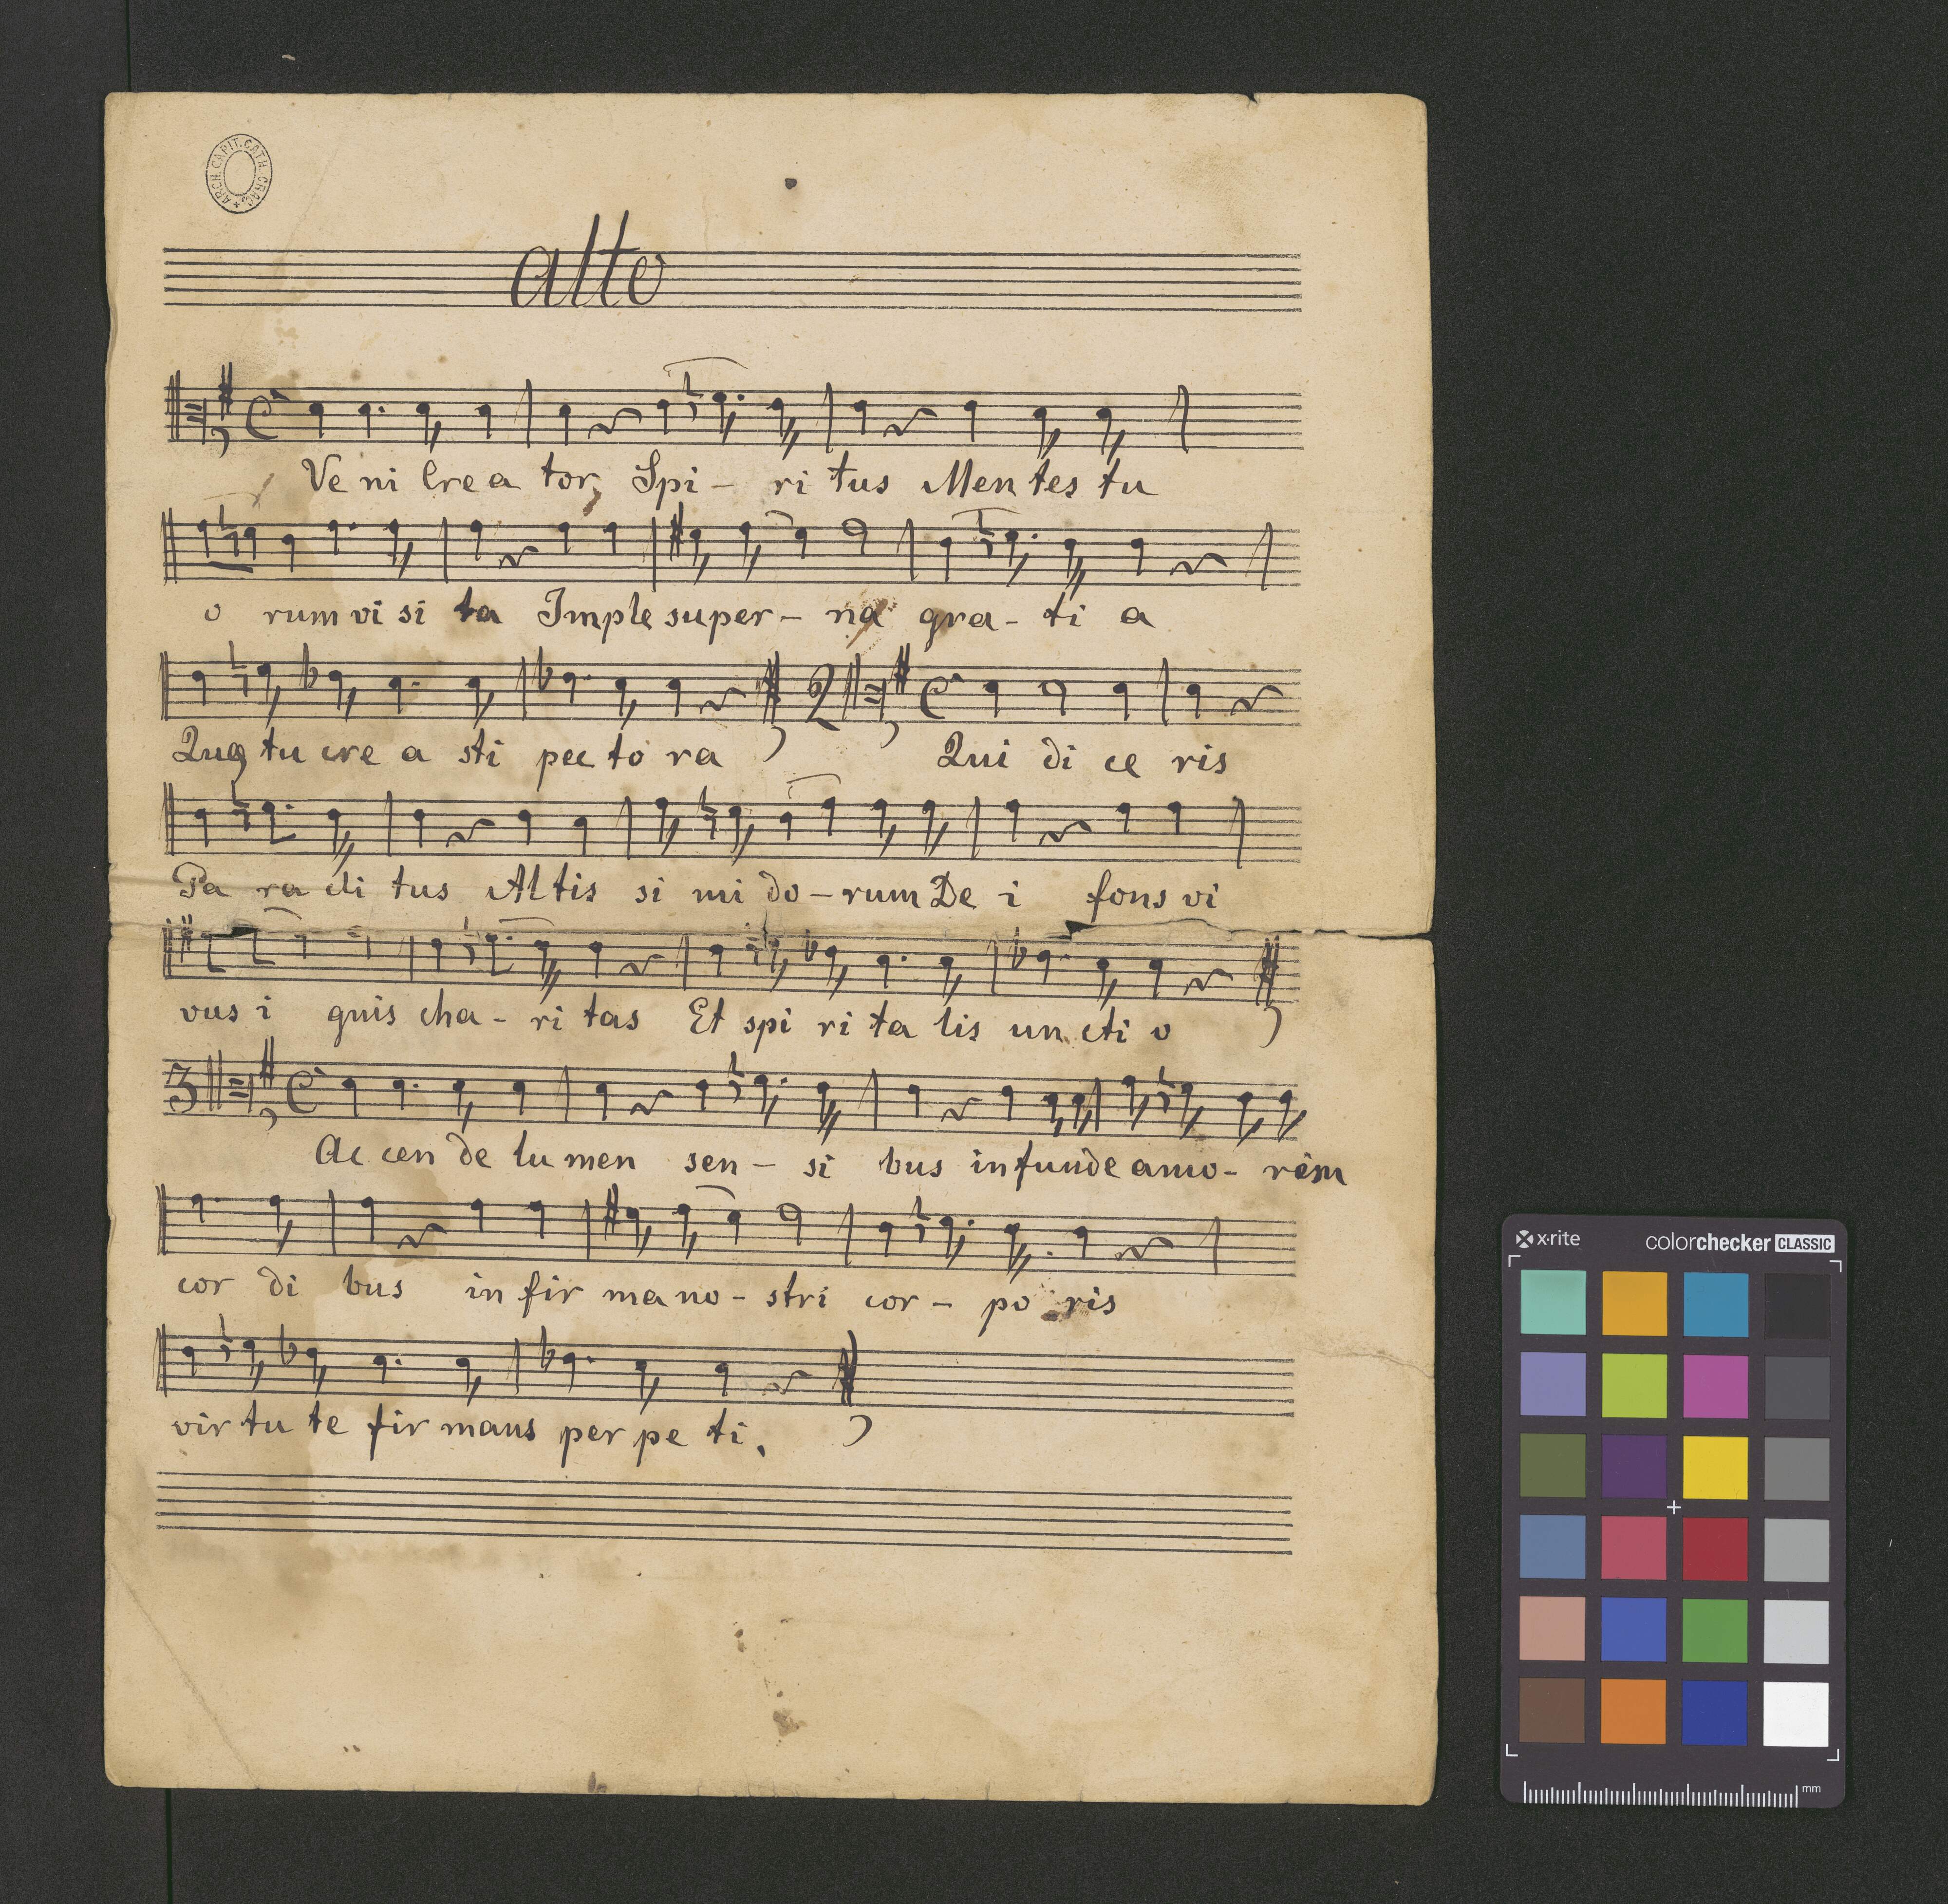 ARCH. CAPIT. CATH. CRAC.
alto
Ve ni Cre a tor, Spi - ri tus Men tes tu
o rum vi si ta Imple super - na gra - ti a
Quę tu cre a sti pec to ra 2 Qui di ce ris
Pa ra cli tus Al tis si mi do - rum De i fons vi
vus i gnis cha - ri tas Et spi ri ta lis un cti o
3
Ac cen de lu men sen - si bus in funde amo - rem
cor di bus in fir ma no - stri cor - po ris
vir tu te fir mans per pe ti.
x·rite colorchecker CLASSIC
mm